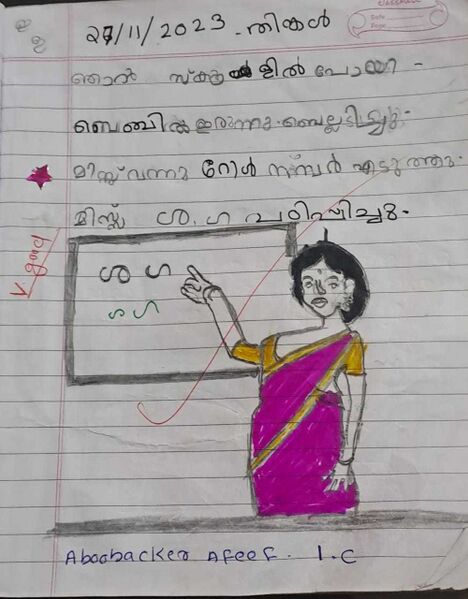 27/11/2023 - തിങ്കൾ
ഞാൻ സ്കൂളിൽ പോയി -
ബെഞ്ചിൽ ഇരുന്നു. ബെല്ലടിച്ചു.
മിസ്സ് വന്നു റോൾ നമ്പർ എടുത്തു.
മിസ്സ് ശ, ഗ പഠിപ്പിച്ചു.
V. good
ശ ഗ
ശ ഗ
Aboobacker Afeef. 1.C